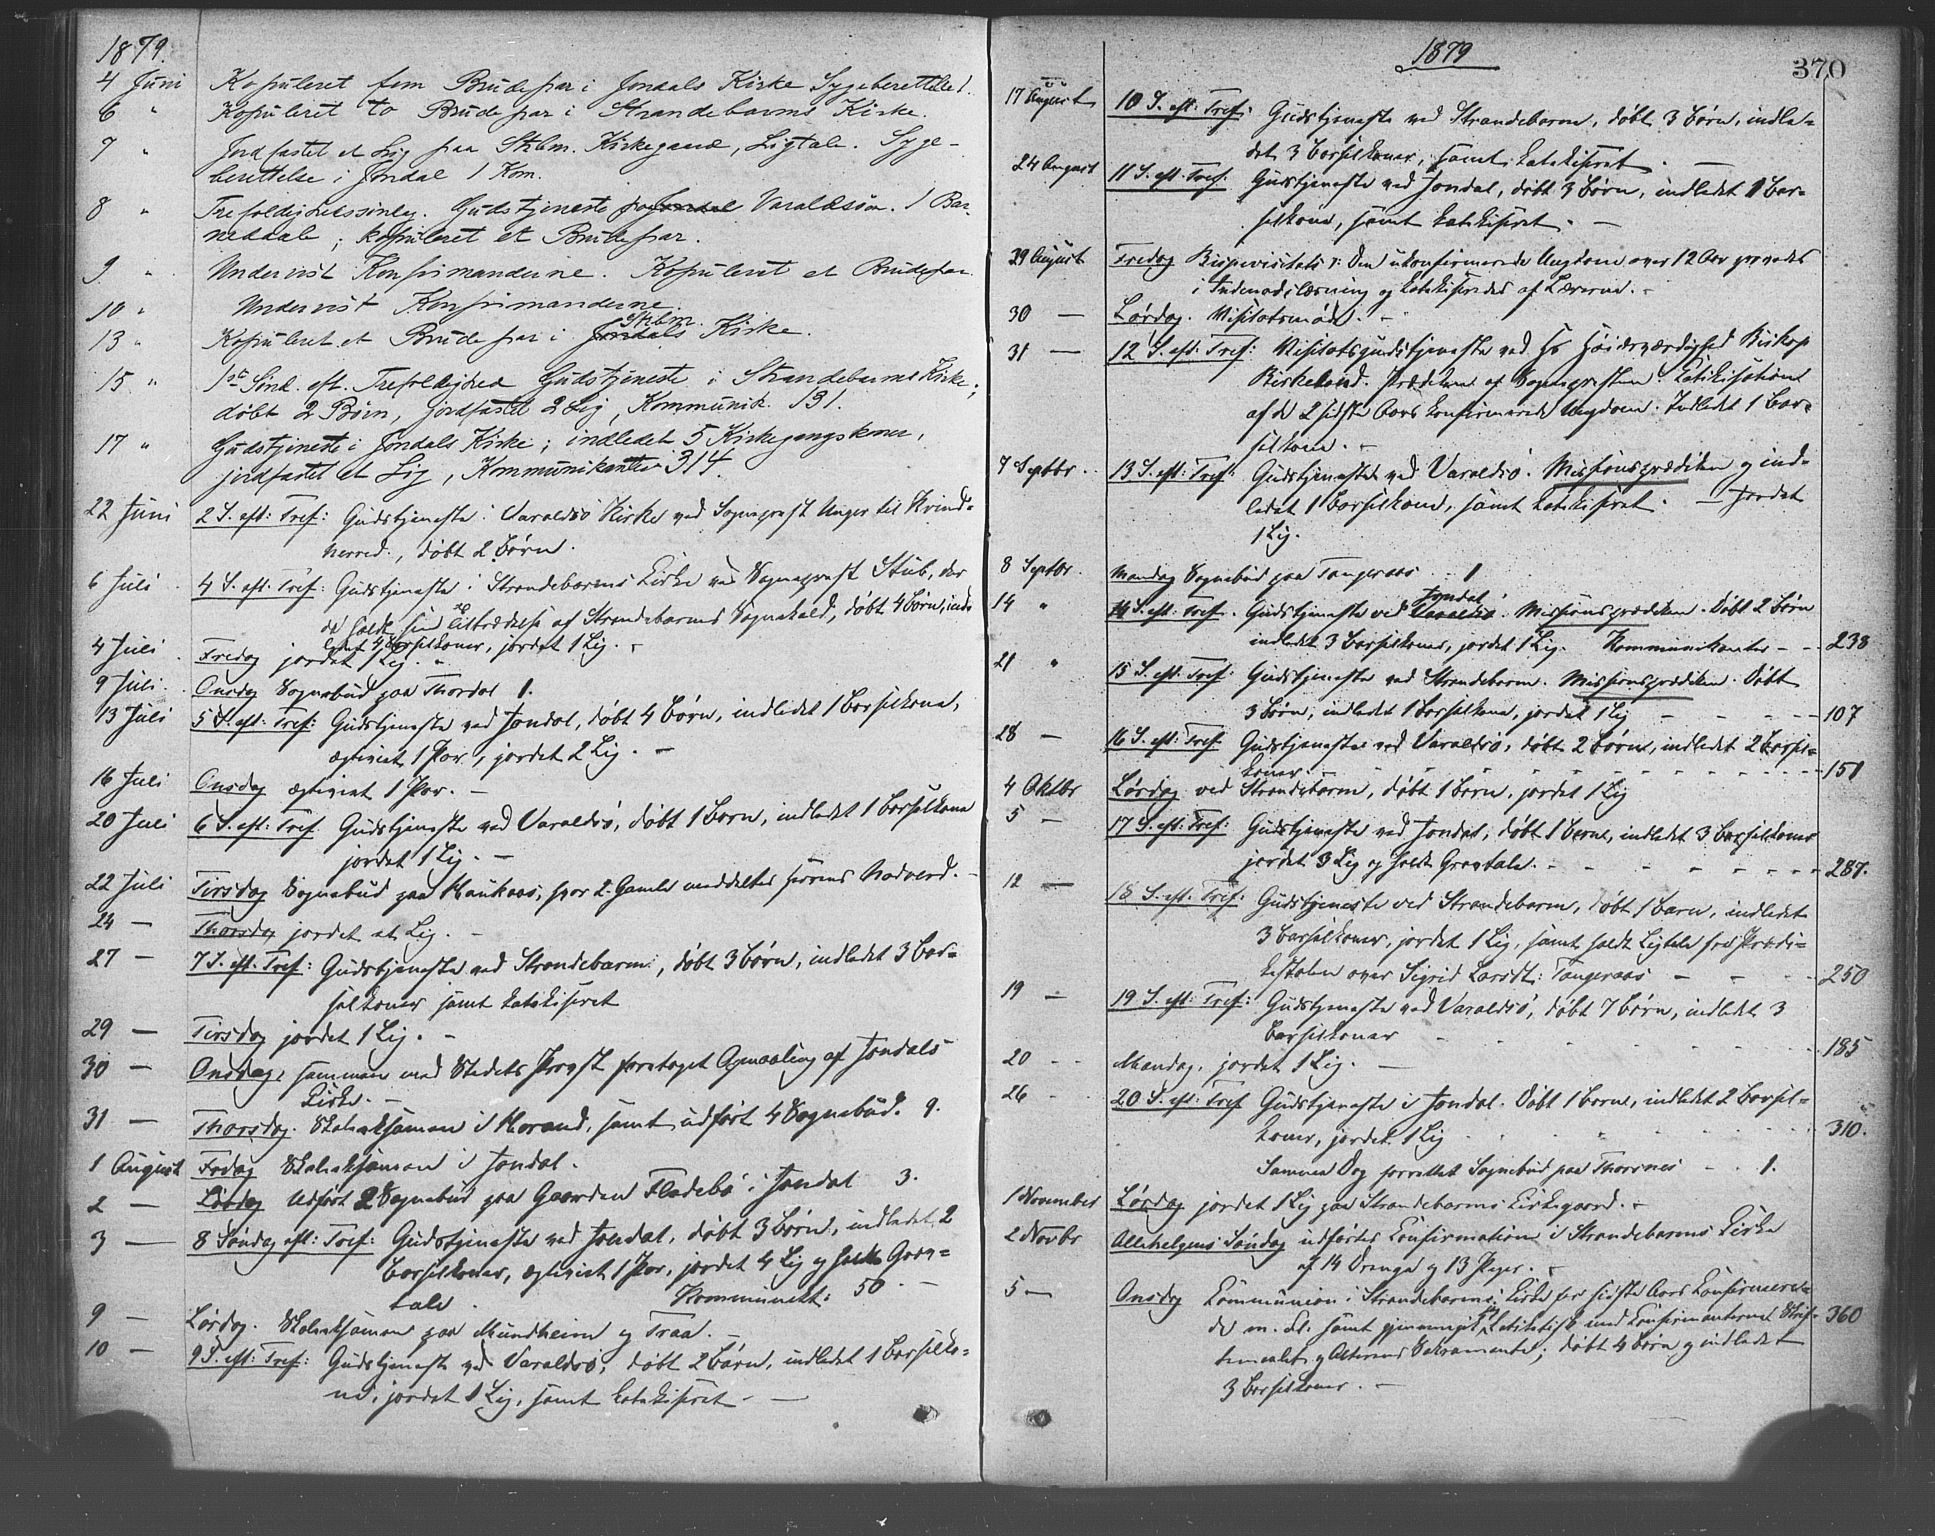 1879.
4 Juni Kopuleret fem Brudepar i Jondals Kirke Sygeberettelse 1.
6 " Kopuleret to Brudepar i Strandebarms Kirke.
7 " Jordfastet et Lig paa Stbm. Kirkegaard, Ligtale. Syge-
berettelse i Jondal 1 Kom.
8 " Trefoldighedssøndag. Gudstjeneste Varaldsøen. 1 Bar-
neddaab; kopuleret et Brudepar.
9. " Undervist Konfirmanderne. Kopuleret et Brudepar.
10 " Undervist Konfirmanderne.
13 " Kopuleret et Brudepar i Jondals Stbm. Kirke.
15 " 1ste Sønd. eft. Trefoldighed Gudstjeneste i Strandebarms Kirke;
døbt 2 Børn, jordfastet 2 Lig, Kommunik. 131.
17 " Gudstjeneste i Jondals Kirke; indledet 5 Kirkegangskoner,
jordfastet et Lig, Kommunikanter 314.
22 Juni 2 S. eft: Tref: Gudstjeneste i Varaldsø Kirke ved Sognepræst Unger til Kvind-
herred., døbt 2 Børn.
6 Juli 4 S. eft: Tref: Gudstjeneste i Strandebarms Kirke ved Sognepræst Stub, der
da holdt sin Tiltrædelse af Strandebarms Sognekald, døbt 4 Børn, ind-
ledet 4 Barselkoner, jordet 1 Lig.
4 Juli Fredag jordet 1 Lig.
9 Juli. Onsdag Sognebud paa Thordal 1.
13 Juli 5 S. eft: Tref: Gudstjeneste ved Jondal, døbt 4 Børn, indledet 1 Barselkone,
ægteviet 1 Par, jordet 2 Lig. —
16 Juli Onsdag ægteviet 1 Par. —
20 Juli 6 S. eft: Tref. Gudstjeneste ved Varaldsø, døbt 1 Barn, indledet 1 Barselkone
jordet 1 Lig. —
22 Juli Tirsdag Sognebud paa Haukaas, hvor 2 Gamle meddeltes Herrens Nadverd. —
24 — Thorsdag jordet et Lig. —
27 — 7 S. eft: Tref: Gudstjeneste ved Strandebarm, døbt 3 Børn, indledet 3 Bar-
selkoner samt katekiseret
29 — Tirsdag jordet 1 Lig. —
30 — Onsdag, sammen med Stedets Provst foretaget Opmaaling af Jondals
Kirke. —
31 — Thorsdag. Skoleeksamen i Herand, samt udført 4 Sognebud. 9.
1 August Fredag Skoleeksamen i Jondal.
2 — Lørdag Udført 2 Sognebud paa Gaarden Fladebø i Jondal 3.
3 — 8 Søndag eft: Tref: Gudstjeneste ved Jondal, døbt 3 Børn, indledet 2
Barselkoner, ægteviet 1 Par, jordet 4 Lig og holdt Grav-
tale. Kommunikt: 50. —
9 — Lørdag. Skoleeksamen paa Mundheim og Traa. —
10 — 9 S. eft: Tref: Gudstjeneste ved Varaldsø, døbt 2 Børn, indledet 1 Barselko-
ne, jordet 1 Lig, samt katekiseret —
1879
370
17 August 10 S. eft: Tref: Gudstjeneste ved Strandebarm, døbt 3 Børn, indle-
det 3 Barselkoner, samt katekiseret —
24 August 11 S. eft. Tref: Gudstjeneste ved Jondal, døbt 3 Børn, indledet 1 Bar-
selkone, samt katekiseret. —
29 August Fredag Bispevisitats: Den ukonfirmerede Ungdom over 12 Aar prøvedes
i Indenadslæsning og katekiseredes af Lærerne. —
30 — Lørdag. Visitatsmøde. —
31 — 12 S. eft: Tref: Visitatsgudstjeneste ved Hs Høiærværdighed Biskop
Birkeland. Prædiken af Sognepræsten. Katekisation
af de 2 sidste Aars konfirmerede Ungdom. Indledet 1 Bar-
selkone. —
7 Septbr. 13 S. eft: Tref: Gudstjeneste ved Varaldsø. Missionsprædiken og ind-
ledet 1 Barselkone, samt katekiseret. — Jordet
1 Lig.
8 Septbr. Mandag Sognebud paa Tangeraas 1
14 " 14 S. eft: Tref. Gudstjeneste ved Varaldsø Jondal. Missionsprædiken. Døbt 2 Børn
indledet 3 Barselkoner, jordet 1 Lig. Kommunikanter - - 238
21 " 15 S. eft: Tref: Gudstjeneste ved Strandebarm. Missionsprædiken. Døbt
3 Børn, indledet 1 Barselkone, jordet 1 Lig - - - - 107
28 — 16 S. eft: Tref. Gudstjeneste ved Varaldsø, døbt 2 Børn, indledet 2 Barsel-
koner. - - - - 151
4 Oktbr Lørdag ved Strandebarm, døbt 1 Barn, jordet 1 Lig
5 — 17 S. eft: Tref: Gudstjeneste ved Jondal, døbt 1 Barn, indledet 3 Barselkoner
jordet 3 Lig og holdt Gravtale. - - - - 287.
12 — 18 S. eft: Tref: Gudstjeneste ved Strandebarm, døbt 1 Barn, indledet
3 Barselkoner, jordet 1 Lig, samt holdt Ligtale fra Prædi-
kestolen over Sigrid Larsdt: Tangeraas - - - 250
19 — 19 S. eft: Tref: Gudstjeneste ved Varaldsø, døbt 7 Børn, indledet 3
Barselkoner - - - - 185
20 - - Mandag, jordet 1 Lig. —
26 - 20 S. eft: Tref Gudstjeneste i Jondal. Døbt 1 Barn, indledet 2 Barsel-
koner, jordet 1 Lig - - - - 310.
Samme Dag forrettet Sognebud paa Thorsnes - - 1.
1 November Lørdag jordet 1 Lig paa Strandebarms Kirkegaard. —
2 Novbr Allehelgens Søndag udførtes Konfirmation i Strandebarms Kirke
af 14 Drenge og 13 Piger. —
5 — Onsdag Kommunion i Strandebarms Kirke for sidste Aars Konfirmere-
de m. fl. samt gjennemgik Katekese med Konfirmanterne Skrif- 360
temaalets og Alterens Sakramente; døbt 4 Børn og indledet
3 Barselkoner. —